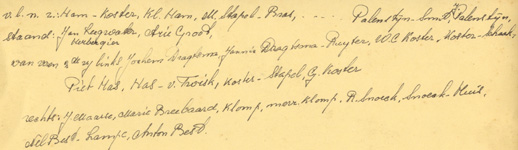 v.l.n.r: Ham-Koster, Kl. Ham, M. Stapel-Bras, ..... Palenstijn-Smit, Palenstijn,
staand: Jan Leegwater, Arie Groot,
van voren Jochem Dragtsma, Jannie Dragtsma-Ruyter, W.C. Koster, Koster-Schaak,
Piet Has, Has-v. Twisk, Koster-Stapel, G. Koster
rechts: J. Marie Breebaard, Klomp, mevr. Klomp, R. Snoeck, Snoeck-
Nel Best-Lampe, Anton Best.